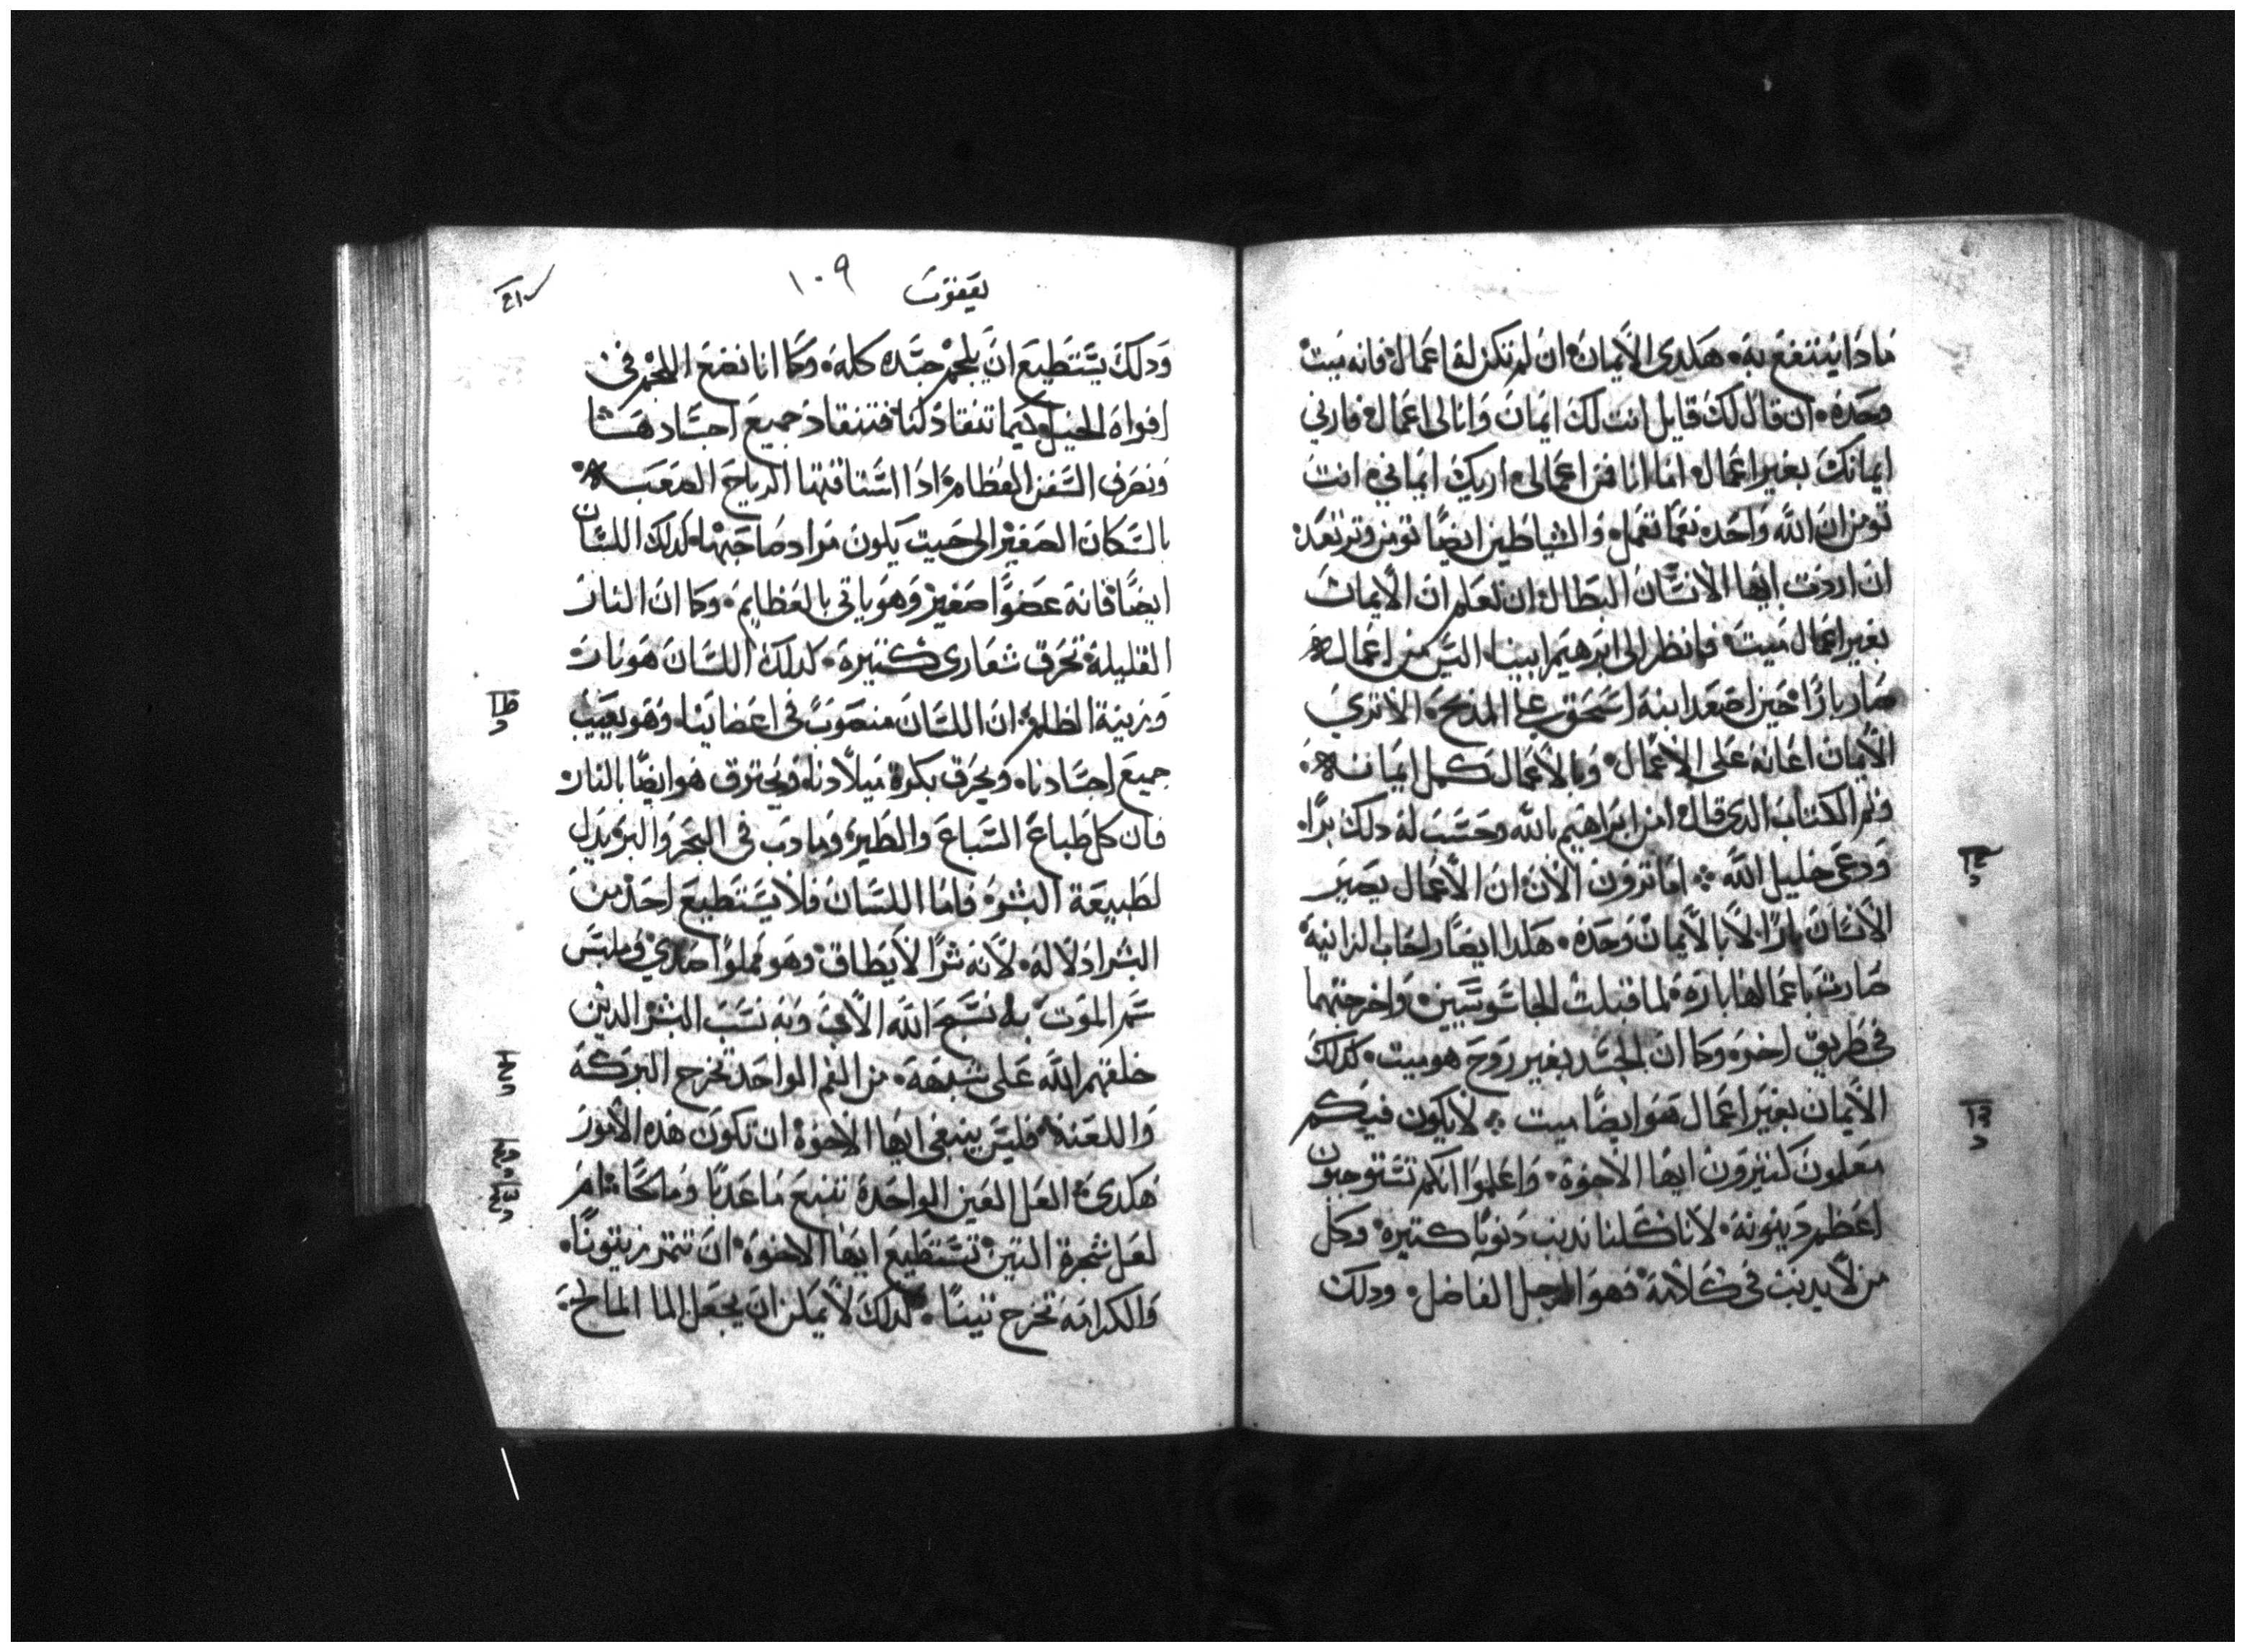 مادا ينتفع به. هكدى الأيمان ان لم تكن لها اعمال فانه ميت
وحده. ان قال لك قايل انت لك ايمان وانا لى اعمال فارنى
ايمانك بغير اعمال. اما انا فمن اعمالى اريك ايماني. انت
تومن ان الله واحد. نعما تعمل. والشياطين ايضًا تومن وترتعد.
ان اردت ايها الأنسان البطال ان تعلم ان الأيمان
بغير اعمال ميت. فانظر الى ابرهيم ابينا. اليس من اعماله
صار بارًا. حين اصعد ابنه اسحق على المذبح. الا ترى
الأيمان اعانه على الأعمال. وبالأعمال كمل ايمانه.
وتم الكتاب الدى قال امن ابراهيم بالله وحسب له دلك برًا.
ودعى خليل الله. اما ترون الأن ان الأعمال يصير
الأنسان بارًا. لا بالأيمان وحده. هكدا ايضًا راحاب الزانية
صارت باعمالها باره. لما قبلت الجاسوسيين. واخرجتهما
فى طريق اخره. وكما ان الجسد بغير روح هو ميت. كدلك
الأيمان بغير اعمال هو ايضًا ميت. لا يكون فيكم
معلمون كتيرون ايها الأخوة. واعلموا انكم تستوجبون
اعظم دينونه. لأنا كلنا ندنب دنوبًا كتيرة. وكل
من لا يدنب فى كلامه فهو الرجل الفاضل. ودلك
يعقوب ١٠٩
ودلك يستطيع ان يلجم جسده كله. وكما انا نضع اللجم فى
افواه الخيل كيما تنقاد لنا فتنقاد جميع اجسادها
ونصرف السفن العظام. ادا استاقتها الرياح الصعبه
بالسكان الصغير الى حيت يكون مراد صاحبها. كدلك اللسان
ايضًا فانه عضوًا صغير وهو ياتى بالعظايم. وكما ان النار
القليلة تحرق شعارى كتيرة. كدلك اللسان هو نار
وزينة الظلم. ان اللسان منصوب فى اعضاينا. وهو يعيب
جميع اجسادنا. ويحرق بكرة ميلادنا. ويحترق هو ايضًا بالنار
فان كل طباع السباع والطير. وما دب فى البحر والبر يدل
لطبيعة البشر. فاما اللسان فلا يستطيع احد من
البشر ادلاله. لأنه شرًا لا يطاق. وهو مملوا صدي وملبس
سم الموت. به نسبح الله الأب. وبه نسب البشر الدين
خلقهم الله على شبهه. من الفم الواحد تخرج البركة
واللعنة. فليس ينبغى ايها الأخوة ان تكون هده الأمور
هكدى. العل العين الواحدة تنبع ما عدبًا وما مالحًا. ام
لعل شجرة التين تستطيع ايها الاخوة ان تتمر زيتونًا.
والكرامه تخرج تينًا. كدلك لا يمكن ان يجعل الما المالح.